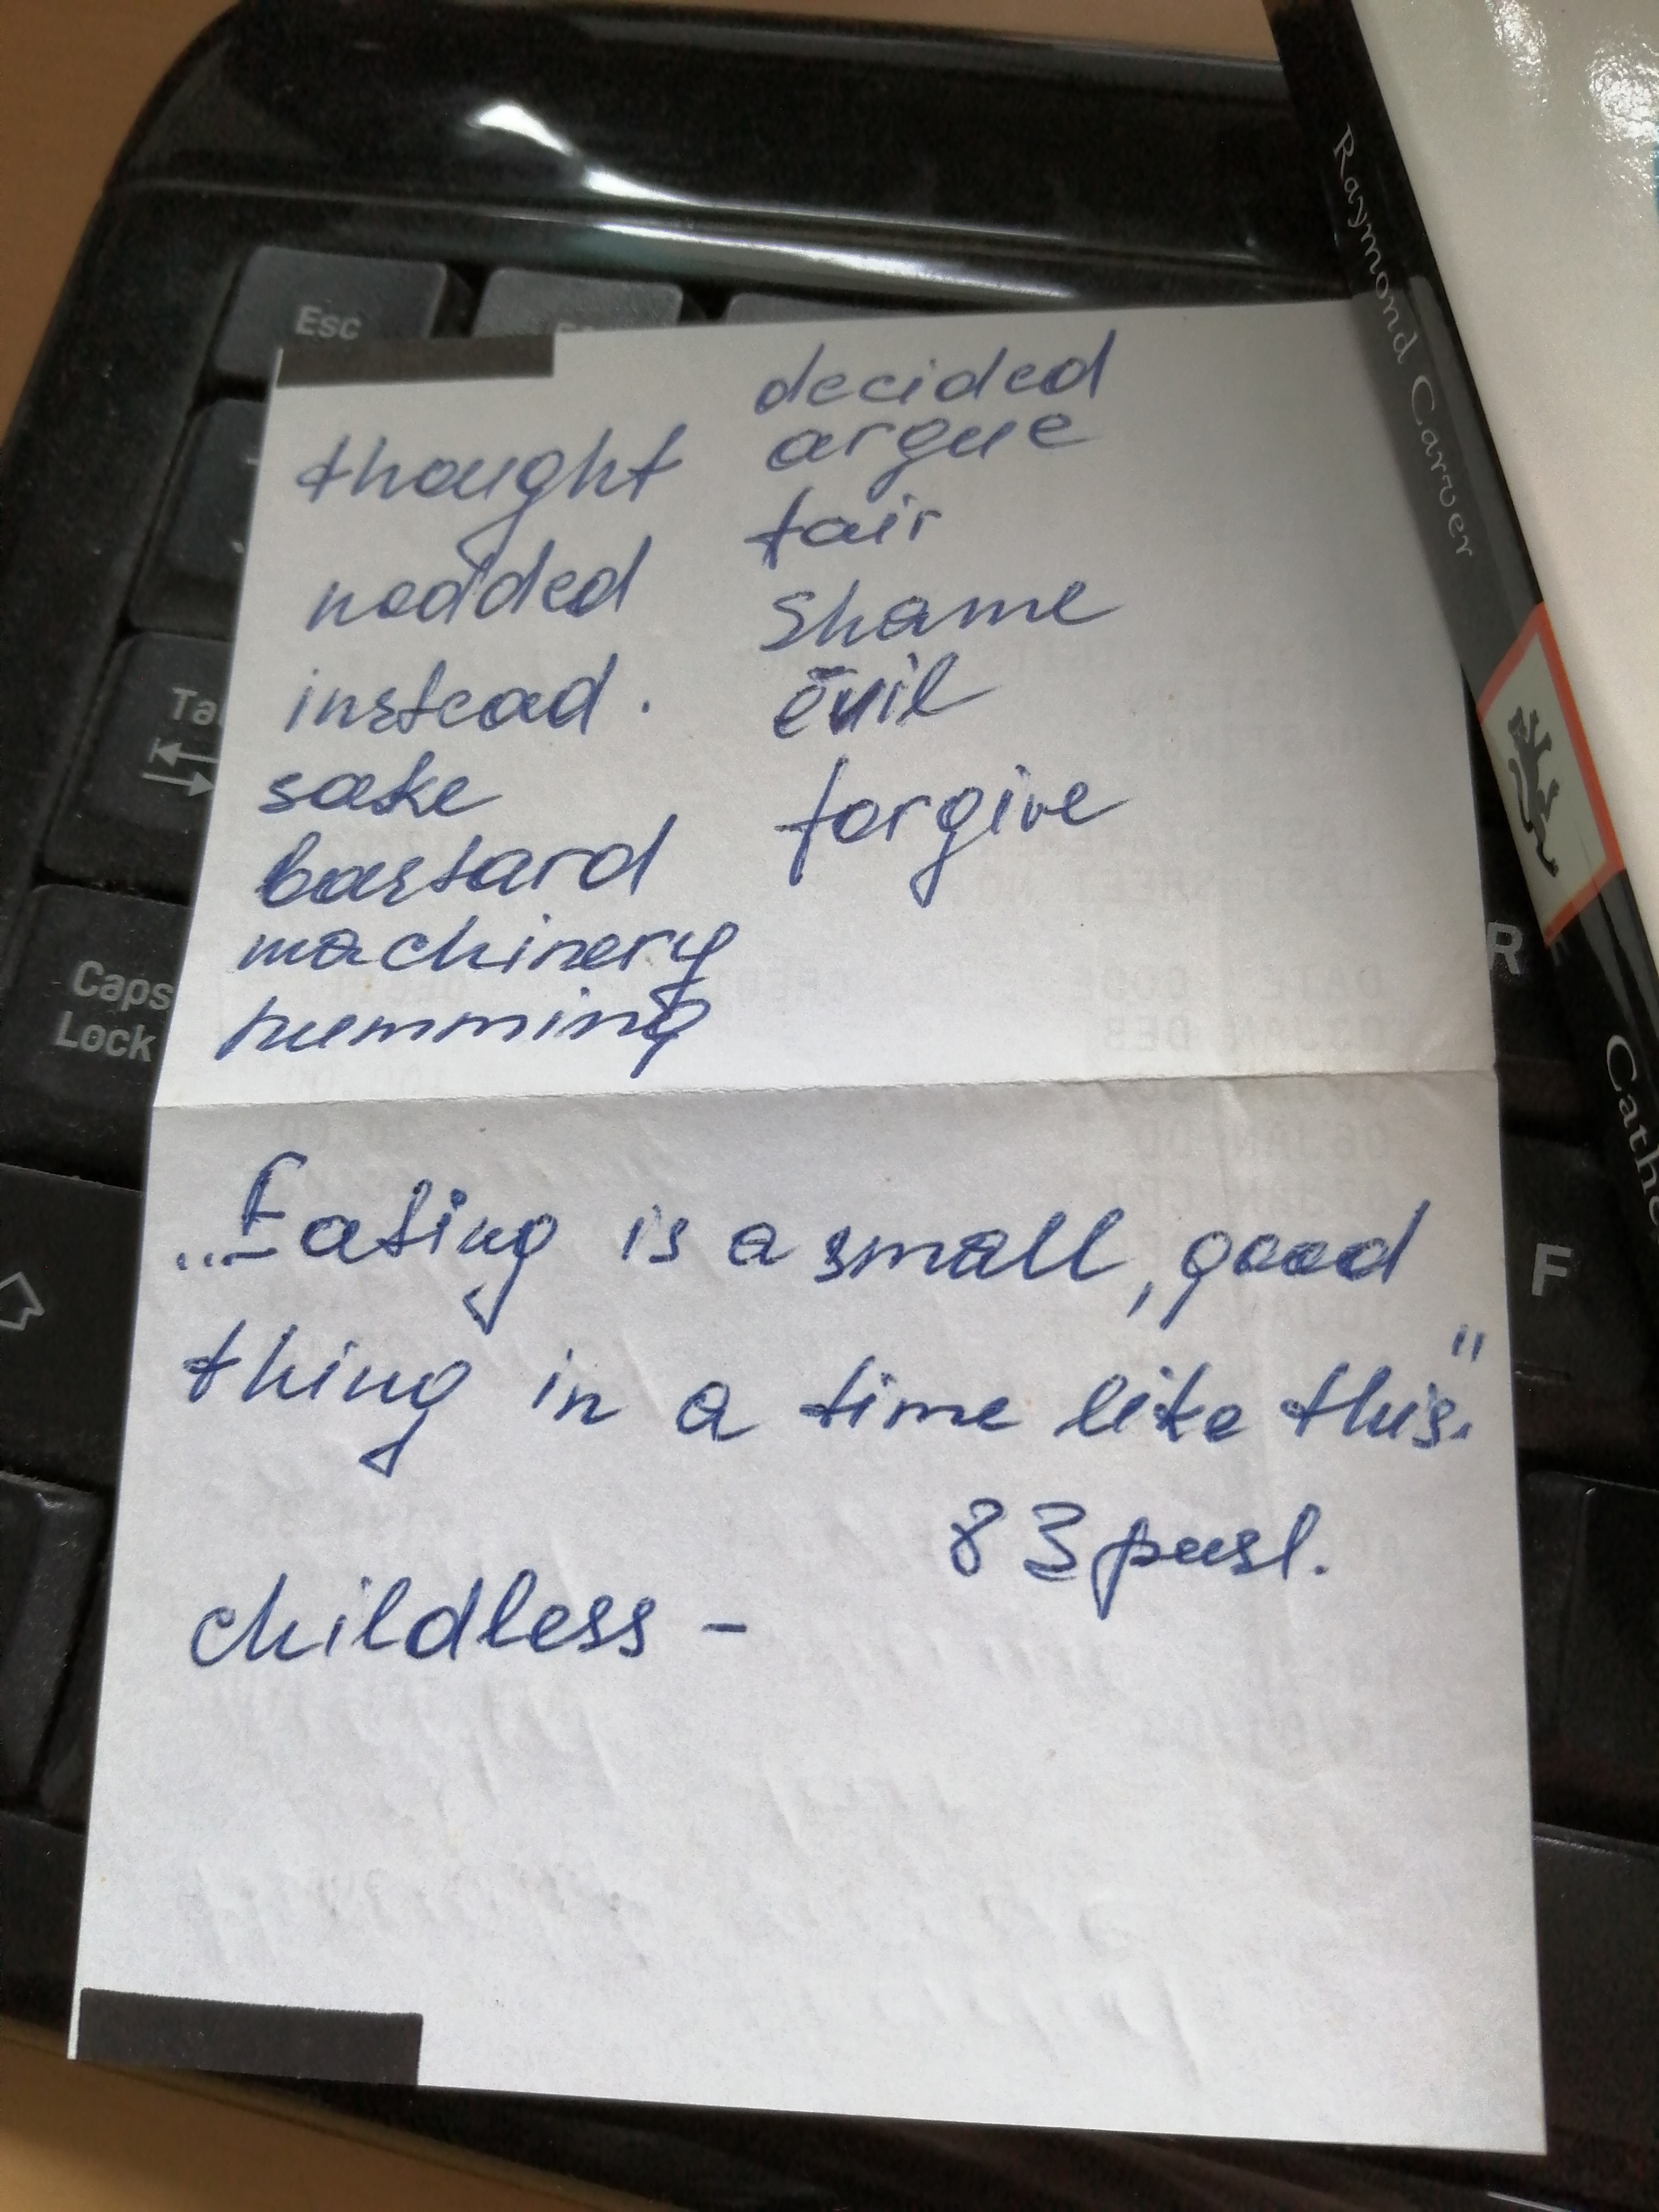 Esc
Tab
Caps
Lock
R
F
Raymond Carver
Cathe
thought
nodded
instead.
sake
bastard
machinery
humming
decided
argue
fair
shame
evil
forgive
„Eating is a small, good
thing in a time like this."
83 pusl.
childless –